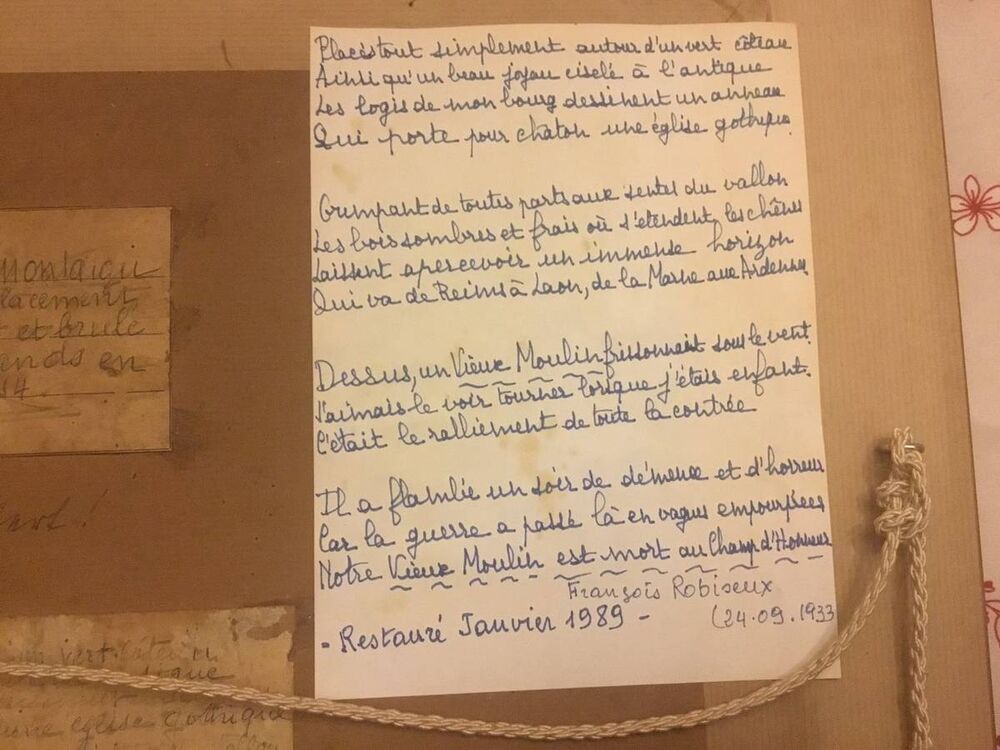 Placés tout simplement autour d'un vert côteau
Ainsi qu'un beau joyau ciselé à l'antique
Les logis de mon bourg dessinent un anneau
Qui porte pour chaton une église gothique.
Grimpant de toutes parts aux sentes du vallon
Les bois sombres et frais où s'étendent les chênes
Laissent apercevoir un immense horizon
Qui va de Reims à Laon, de la Marne aux Ardennes
Dessus, un Vieux Moulin frissonnait sous le vent.
J'aimais le voir tourner lorsque j'étais enfant.
C'était le ralliement de toute la contrée
Il a flambé un soir de démence et d'horreur
Car la guerre a passé là en vagues empourprées
Notre Vieux Moulin est mort au Champ d'Honneur
François Robiseux
- Restauré Janvier 1989 -
(24.09.1933
Montaigu
lacement
et brulé
ends en
14.
ert.
un vert
tique
une église gothique